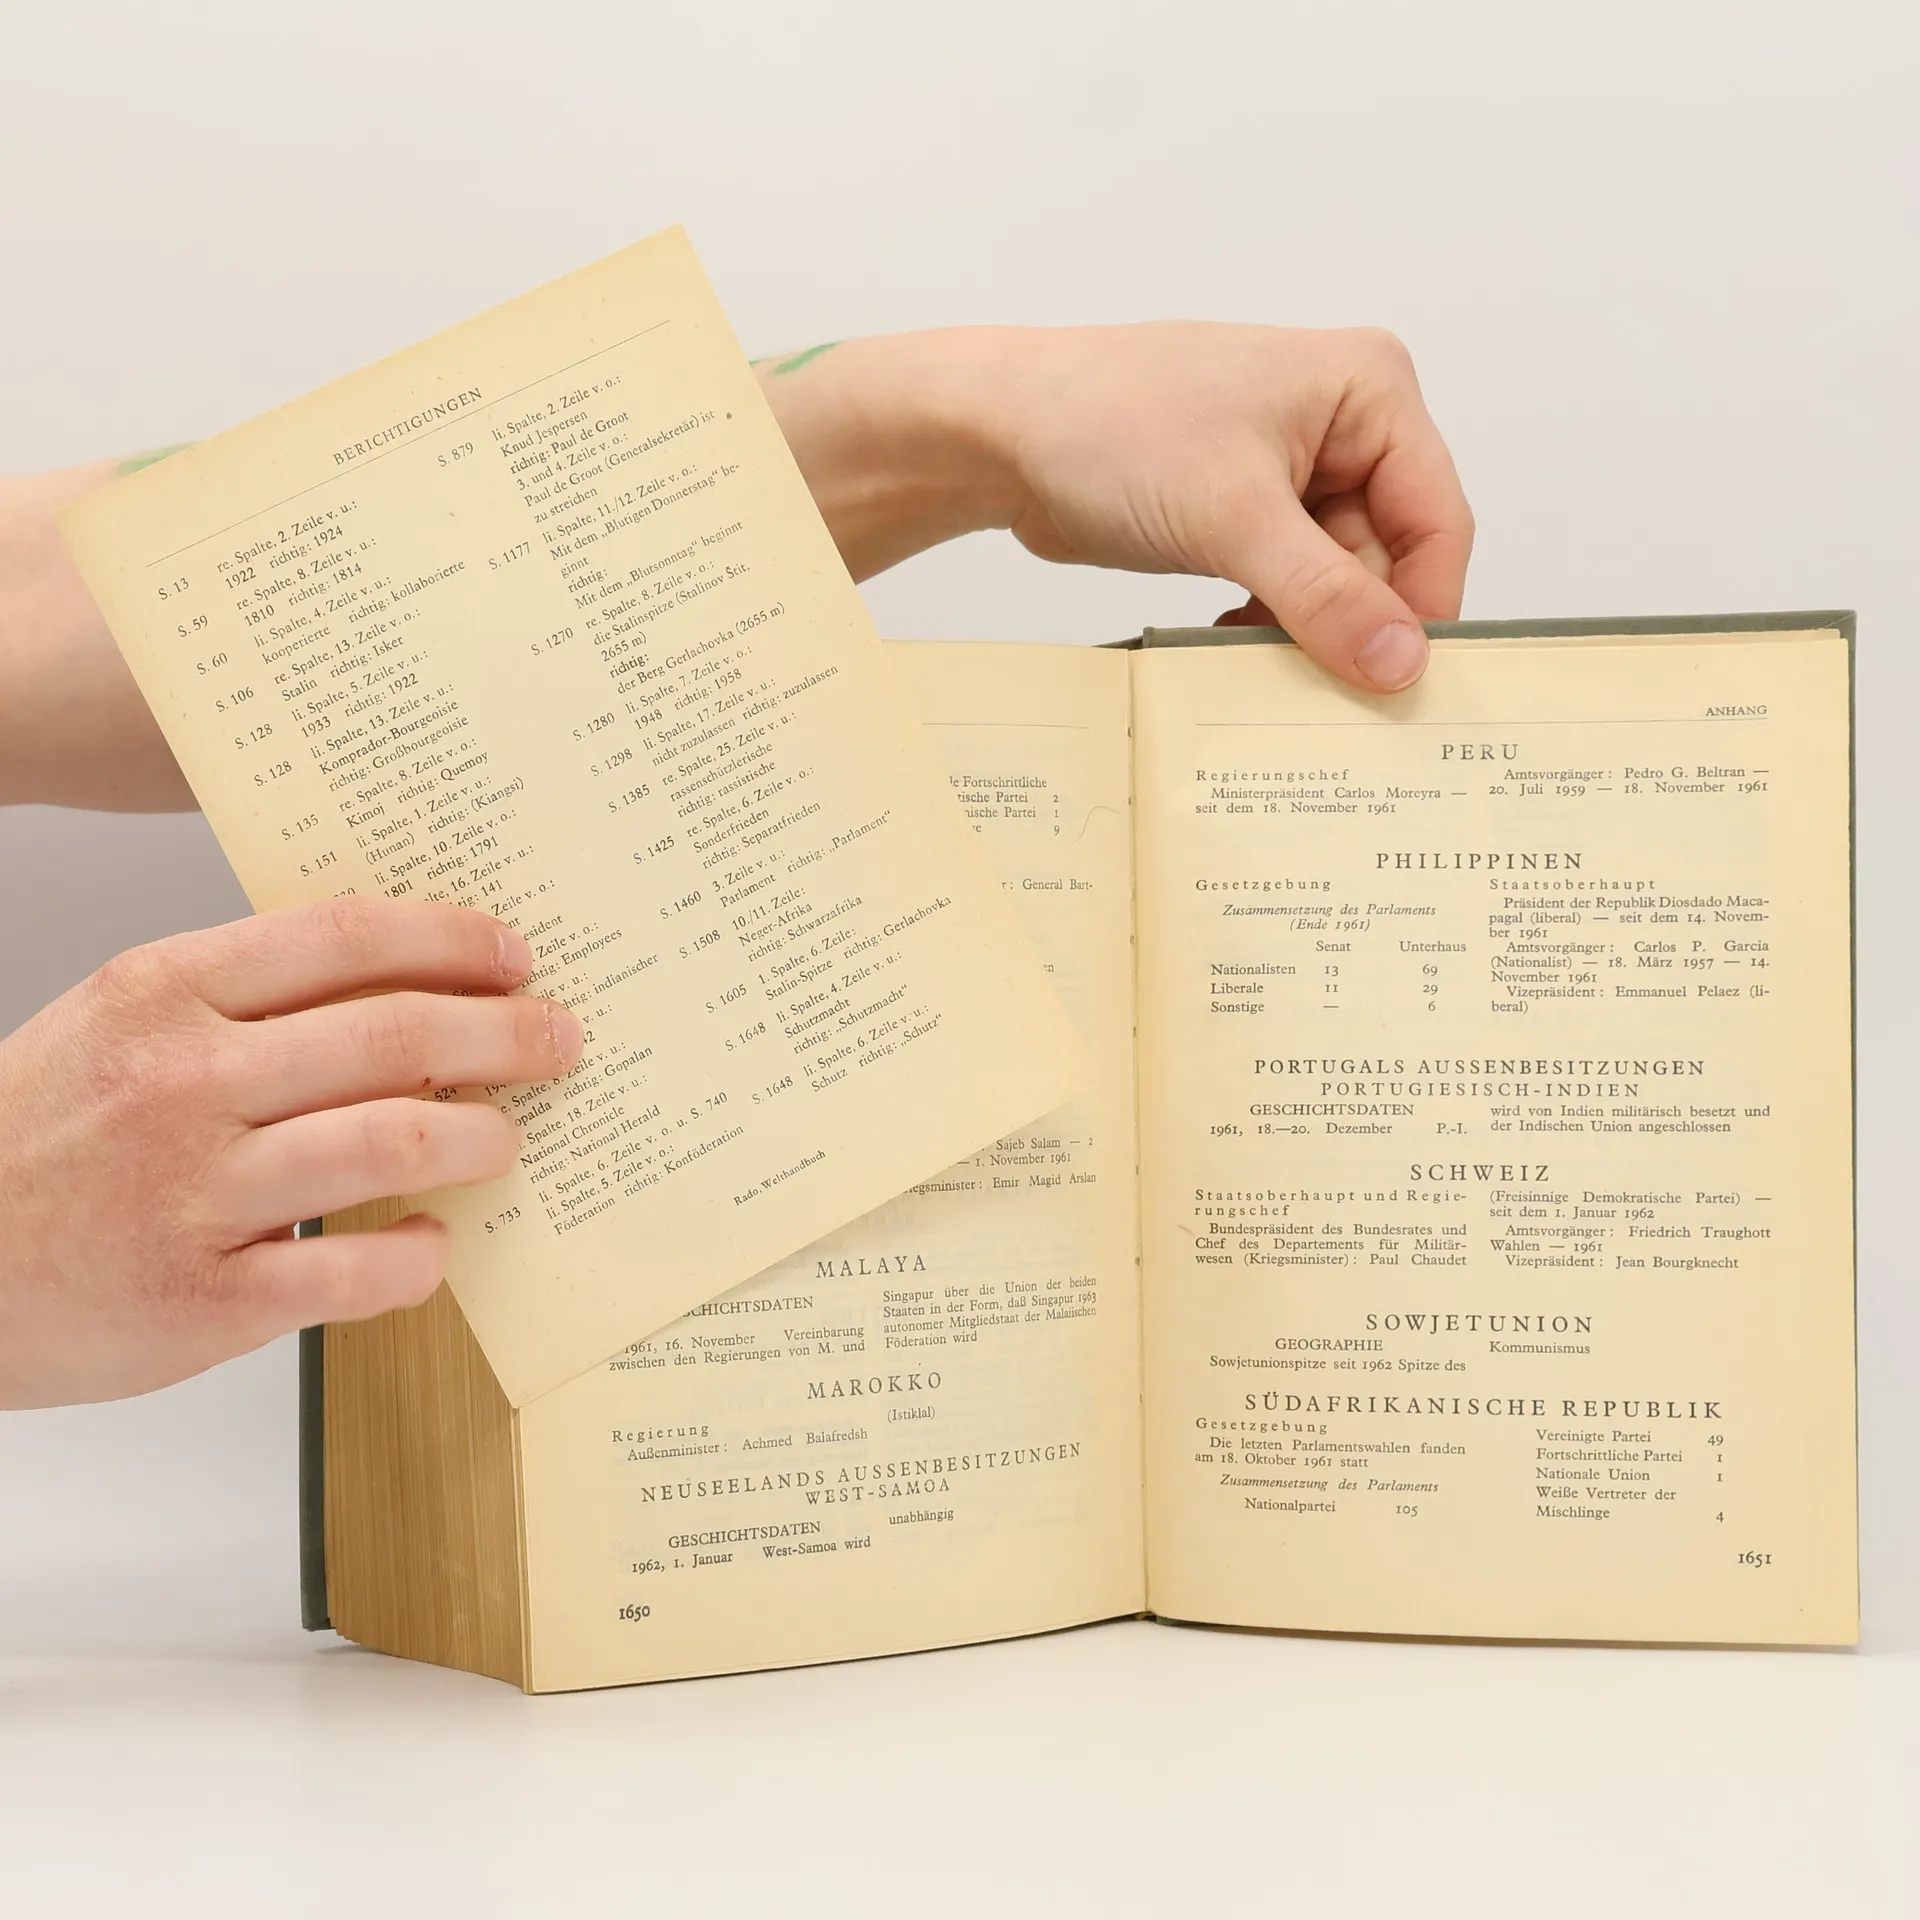 BERICHTIGUNGEN
S. 13 re. Spalte, 2. Zeile v. u.:
1922 richtig: 1924
S. 59 re. Spalte, 8. Zeile v. u.:
1810 richtig: 1814
S. 60 li. Spalte, 4. Zeile v. u.:
kooperierte richtig: kollaborierte
S. 106 re. Spalte, 13. Zeile v. o.:
Stalin richtig: Isker
S. 128 li. Spalte, 5. Zeile v. u.:
1933 richtig: 1922
S. 128 li. Spalte, 13. Zeile v. u.:
Komprador-Bourgeoisie
richtig: Großbourgeoisie
S. 135 re. Spalte, 8. Zeile v. o.:
Kimoj richtig: Quemoy
S. 151 li. Spalte, 1. Zeile v. u.:
(Hunan) richtig: (Kiangsi)
li. Spalte, 10. Zeile v. o.:
1801 richtig: 1791
16. Zeile v. u.:
141
Zeile v. o.:
Zeile v. o.:
Employees
v. u.:
indianischer
v. u.:
524
Spalte, 8. Zeile v. u.:
richtig: Gopalan
Spalte, 18. Zeile v. u.:
National Chronicle
richtig: National Herald
li. Spalte, 6. Zeile v. o. u. S. 740
S. 733 li. Spalte, 5. Zeile v. o.:
Föderation richtig: Konföderation
S. 879 li. Spalte, 2. Zeile v. o.:
Knud Jespersen
richtig: Paul de Groot
3. und 4. Zeile v. o.:
Paul de Groot (Generalsekretär) ist
zu streichen
S. 1177 li. Spalte, 11./12. Zeile v. o.:
Mit dem „Blutigen Donnerstag“ be-
ginnt
richtig:
Mit dem „Blutsonntag“ beginnt
S. 1270 re. Spalte, 8. Zeile v. o.:
die Stalinspitze (Stalinov Štit,
2655 m)
richtig:
der Berg Gerlachovka (2655 m)
S. 1280 li. Spalte, 7. Zeile v. o.:
1948 richtig: 1958
S. 1298 li. Spalte, 17. Zeile v. u.:
nicht zuzulassen richtig: zuzulassen
S. 1385 re. Spalte, 25. Zeile v. u.:
rassenschützlerische
richtig: rassistische
S. 1425 re. Spalte, 6. Zeile v. o.:
Sonderfrieden
richtig: Separatfrieden
S. 1460 3. Zeile v. u.:
Parlament richtig: „Parlament“
S. 1508 10./11. Zeile:
Neger-Afrika
richtig: Schwarzafrika
S. 1605 1. Spalte, 6. Zeile:
Stalin-Spitze richtig: Gerlachovka
S. 1648 li. Spalte, 4. Zeile v. u.:
Schutzmacht
richtig: „Schutzmacht“
S. 1648 li. Spalte, 6. Zeile v. u.:
Schutz richtig: „Schutz“
Rado, Welthandbuch
Fortschrittliche
Partei 2
Partei 1
9
General Bart-
Sajeb Salam —
— 1. November 1961
Emir Magid Arslan
MALAYA
1961, 16. November Vereinbarung
zwischen den Regierungen von M. und
Singapur über die Union der beiden
Staaten in der Form, daß Singapur 1963
autonomer Mitgliedstaat der Malaiischen
Föderation wird
MAROKKO
Regierung
Außenminister: Achmed Balafredsh
(Istiklal)
NEUSEELANDS AUSSENBESITZUNGEN
WEST-SAMOA
GESCHICHTSDATEN
1962, 1. Januar West-Samoa wird
unabhängig
1650
ANHANG
PERU
Regierungschef
Ministerpräsident Carlos Moreyra —
seit dem 18. November 1961
Amtsvorgänger: Pedro G. Beltran —
20. Juli 1959 — 18. November 1961
PHILIPPINEN
Gesetzgebung
Zusammensetzung des Parlaments
(Ende 1961)
Senat Unterhaus
Nationalisten 13 69
Liberale 11 29
Sonstige — 6
Staatsoberhaupt
Präsident der Republik Diosdado Maca-
pagal (liberal) — seit dem 14. Novem-
ber 1961
Amtsvorgänger: Carlos P. Garcia
(Nationalist) — 18. März 1957 — 14.
November 1961
Vizepräsident: Emmanuel Pelaez (li-
beral)
PORTUGALS AUSSENBESITZUNGEN
PORTUGIESISCH-INDIEN
GESCHICHTSDATEN
1961, 18.—20. Dezember P.-I.
wird von Indien militärisch besetzt und
der Indischen Union angeschlossen
SCHWEIZ
Staatsoberhaupt und Regie-
rungschef
Bundespräsident des Bundesrates und
Chef des Departements für Militär-
wesen (Kriegsminister): Paul Chaudet
(Freisinnige Demokratische Partei) —
seit dem 1. Januar 1962
Amtsvorgänger: Friedrich Traughott
Wahlen — 1961
Vizepräsident: Jean Bourgknecht
SOWJETUNION
GEOGRAPHIE
Sowjetunionspitze seit 1962 Spitze des
Kommunismus
SÜDAFRIKANISCHE REPUBLIK
Gesetzgebung
Die letzten Parlamentswahlen fanden
am 18. Oktober 1961 statt
Zusammensetzung des Parlaments
Nationalpartei 105
Vereinigte Partei 49
Fortschrittliche Partei 1
Nationale Union 1
Weiße Vertreter der
Mischlinge 4
1651